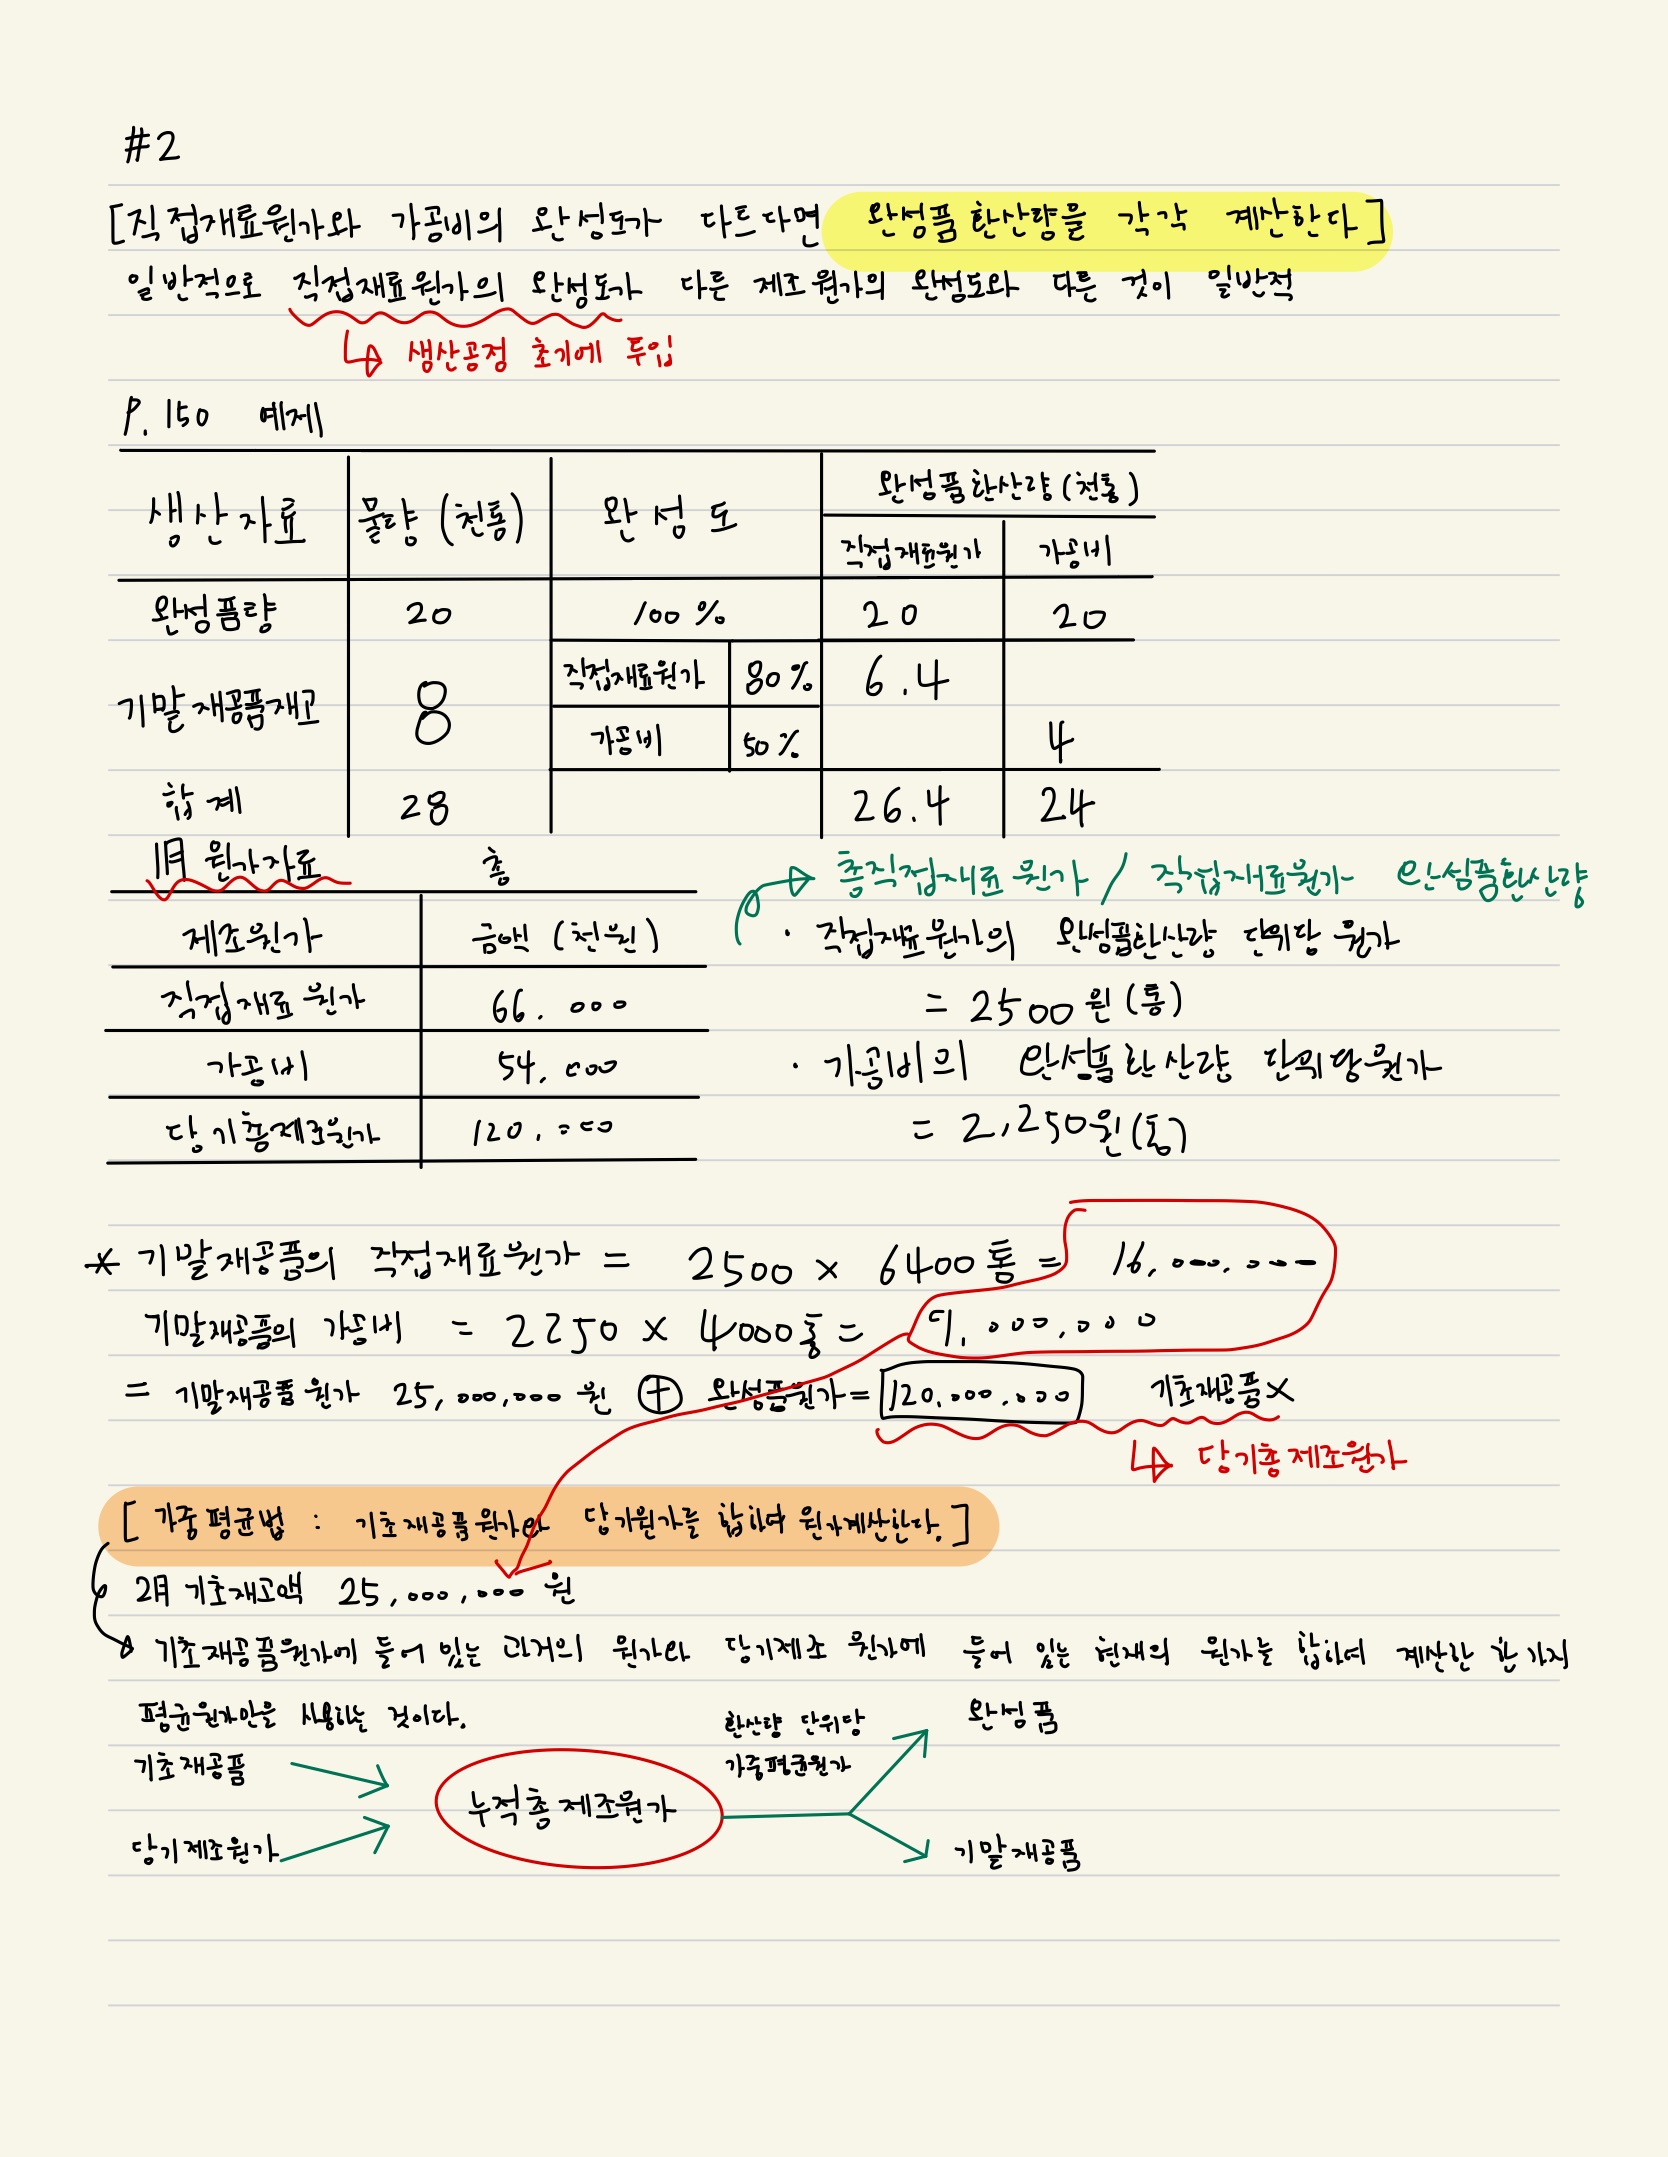 #2
[직접재료원가와 가공비의 완성도가 다르다면 완성품 환산량을 각각 계산한다]
일반적으로 직접재료원가의 완성도가 다른 제조원가의 완성도와 다른 것이 일반적
↳ 생산공정 초기에 투입
P. 150 예제
생산자료 물량 (천통) 완성도 완성품환산량 (천통)
직접재료원가 가공비
완성품량 20 100% 20 20
기말재공품재고 8 직접재료원가 80% 6.4
가공비 50% 4
합계 28 26.4 24
1月 원가자료 총
제조원가 금액 (천원)
직접재료원가 66.000
가공비 54.000
당기총제조원가 120.000
총직접재료원가 / 직접재료원가 완성품환산량
· 직접재료원가의 완성품환산량 단위당 원가
= 2500원 (통)
· 가공비의 완성품환산량 단위당원가
= 2,250원 (통)
* 기말재공품의 직접재료원가 = 2500 × 6400통 = 16,000.000
기말재공품의 가공비 = 2250 × 4000통 = 9,000,000
= 기말재공품원가 25,000,000원 ⊕ 완성품원가 = 120.000.000 기초재공품×
↳ 당기총제조원가
[가중평균법 : 기초재공품원가와 당기원가를 합하여 원가계산한다.]
2月 기초재고액 25,000,000원
기초재공품원가에 들어 있는 과거의 원가와 당기제조 원가에 들어 있는 현재의 원가를 합하여 계산한 한가지
평균원가만을 사용하는 것이다.
기초재공품
당기제조원가
누적총제조원가
환산량 단위당
가중평균원가
완성품
기말재공품